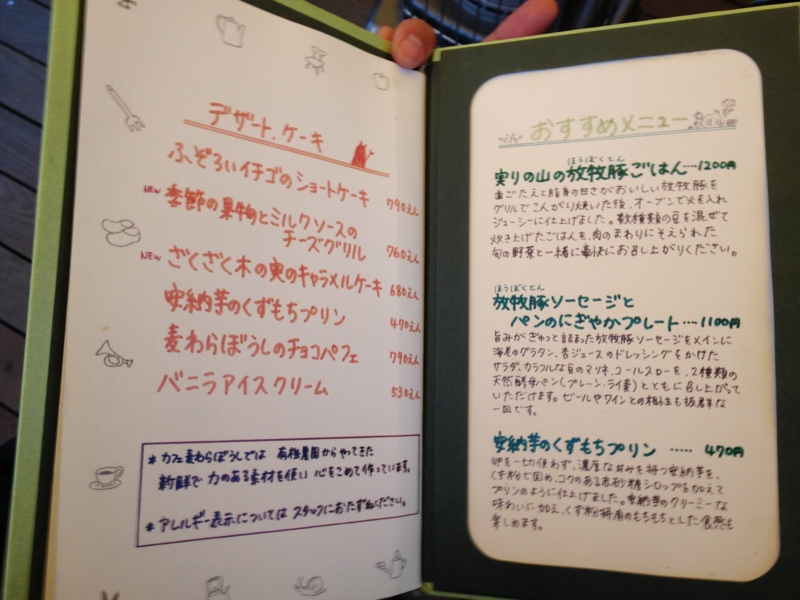 デザート、ケーキ
ふぞろいイチゴのショートケーキ 790えん
NEW 季節の果物とミルクソースの
チーズグリル 760えん
NEW ざくざく木の実のキャラメルケーキ 680えん
安納芋のくずもちプリン 470えん
麦わらぼうしのチョコパフェ 790えん
バニラアイスクリーム 530えん
* カフェ麦わらぼうしでは 有機農園からやってきた
新鮮で力のある素材を使い 心をこめて作っています。
* アレルギー表示については スタッフにおたずねください。
おすすめメニュー
ほうぼくとん
実りの山の放牧豚ごはん…1200円
歯ごたえと脂身の甘さがおいしい放牧豚を
グリルでこんがり焼いた後、オーブンで火を入れ
ジューシーに仕上げました。数種類の豆を混ぜて
炊き上げたごはんを、肉のまわりにそえられた
旬の野菜と一緒に豪快にお召し上がりください。
ほうぼくとん
放牧豚ソーセージと
パンのにぎやかプレート…1100円
旨みがぎゅっと詰まった放牧豚ソーセージをメインに
海老のグラタン、杏ジュースのドレッシングをかけた
サラダ、カラフルな豆のマリネ、コールスローを、2種類の
天然酵母パン(プレーン・ライ麦)とともに召し上がって
いただけます。ビールやワインとの相性も抜群な
一皿です。
安納芋のくずもちプリン …… 470円
卵を一切使わず、濃厚な甘みを持つ安納芋を、
くず粉で固め、コクのある赤砂糖シロップを加えて
プリンのように仕上げました。安納芋のクリーミーな
味わいに加え、くず粉特有のもちもちとした食感も
楽しめます。